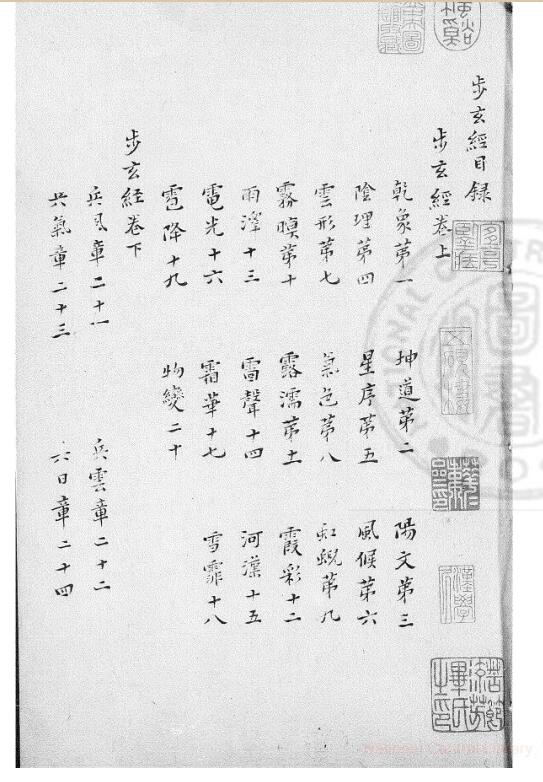 步玄經目録
步玄經卷上
乾象第一 坤道第二 陽文第三
陰理第四 星序第五 風候第六
雲形第七 氣色第八 虹蜺第九
霧暝第十 露濡第十一 霞彩十二
雨澤十三 雷聲十四 河漢十五
電光十六 霜華十七 雪霏十八
雹降十九 物變二十
步玄經卷下
兵風章二十一 兵雲章二十二
兵氣章二十三 六日章二十四
National Central Library